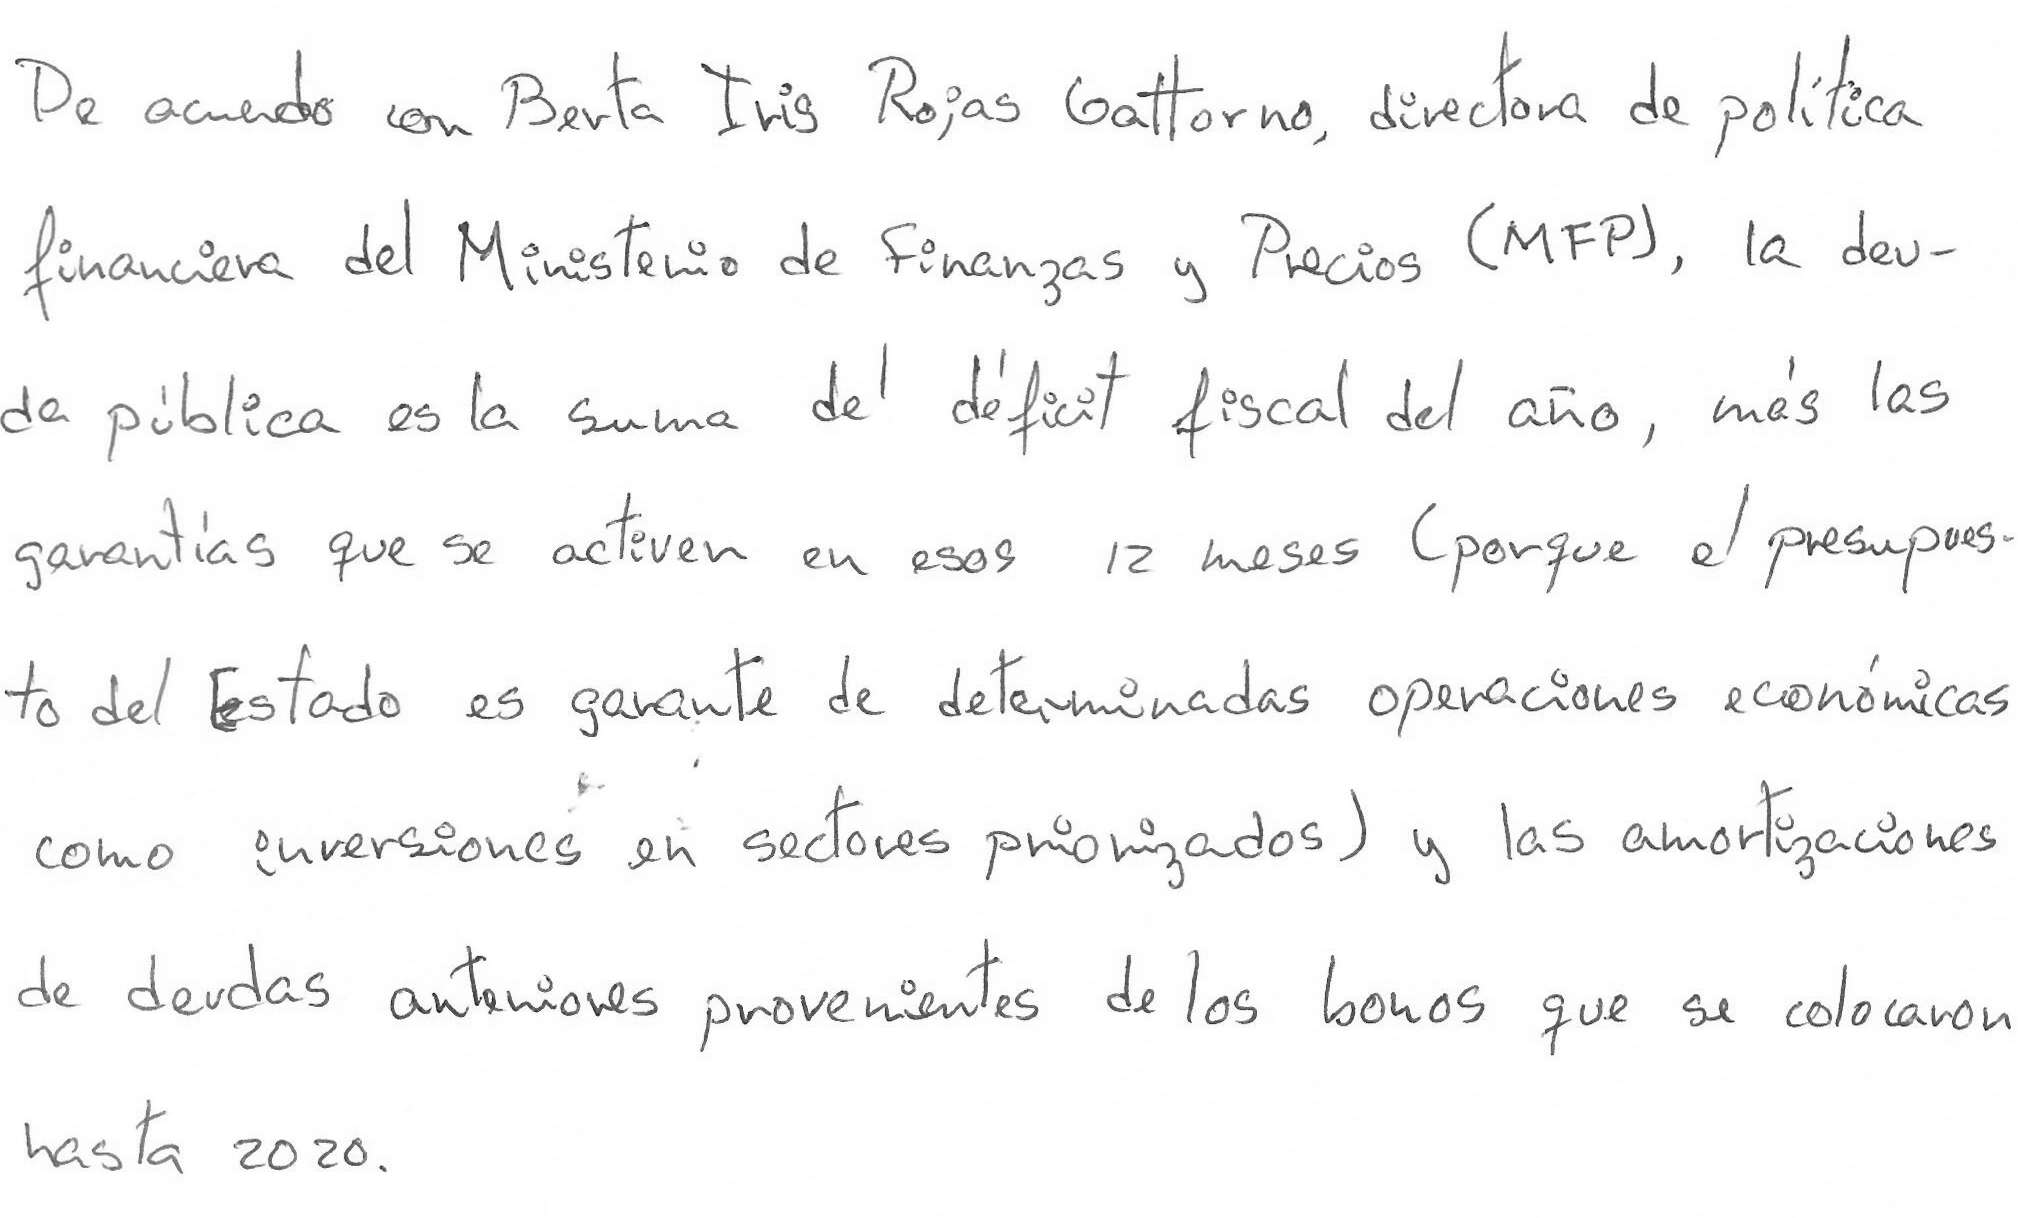 De acuerdo con Berta Iris Rojas Gattorno, directora de política
financiera del Ministerio de Finanzas y Precios (MFP), la deu-
da pública es la suma del déficit fiscal del año, más las
garantías que se activen en esos 12 meses (porque el presupues-
to del Estado es garante de determinadas operaciones económicas
como inversiones en sectores priorizados) y las amortizaciones
de deudas anteriores provenientes de los bonos que se colocaron
hasta 2020.